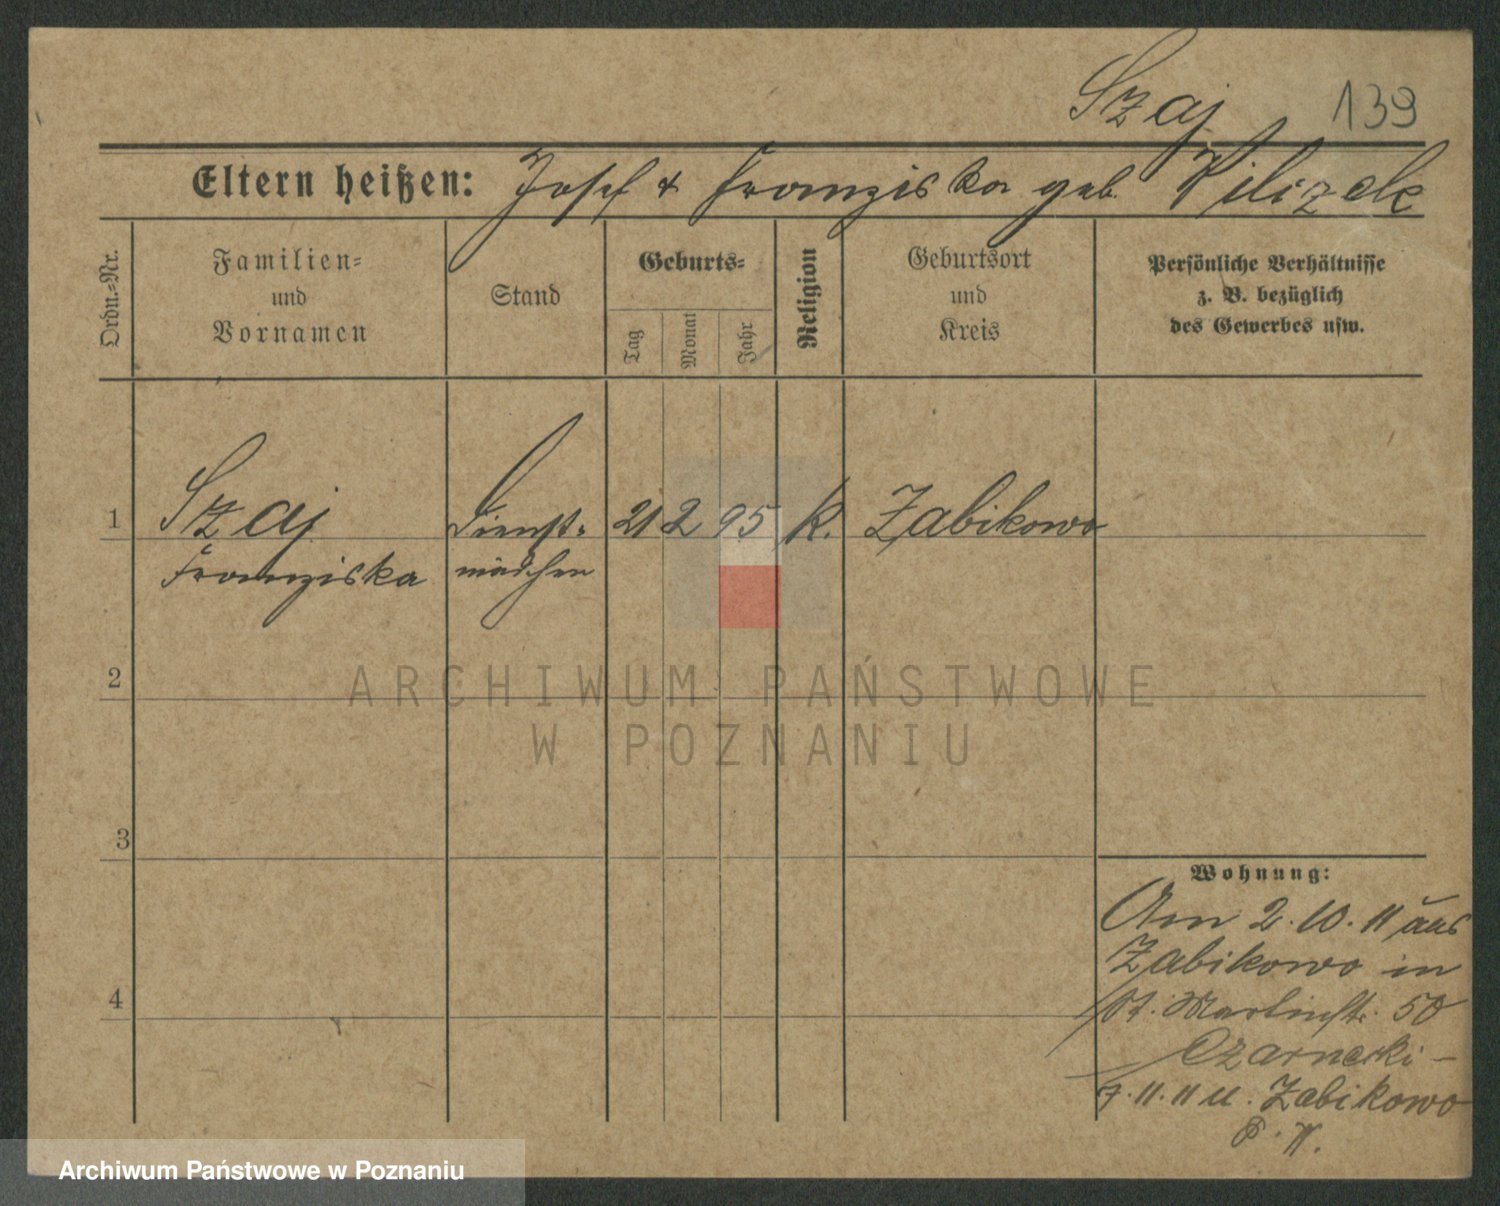 Szaj 139
Eltern heißen: Josef + Franziska geb. Pilizek
Ordn.=Nr.
Familien=
und
Vornamen
Stand
Geburts=
Tag
Monat
Jahr
Religion
Geburtsort
und
Kreis
Persönliche Verhältnisse
z. B. bezüglich
des Gewerbes usw.
1 Szaj Dienst= 21 2 95 K. Zabikowo
Franziska mädchen
2
3
4
Wohnung:
Am 2.10.11 aus
Zabikowo in
St. Martinstr. 50
Czarnecki -
7.11.11 n. Zabikowo
P. W.
ARCHIWUM PAŃSTWOWE
W POZNANIU
Archiwum Państwowe w Poznaniu